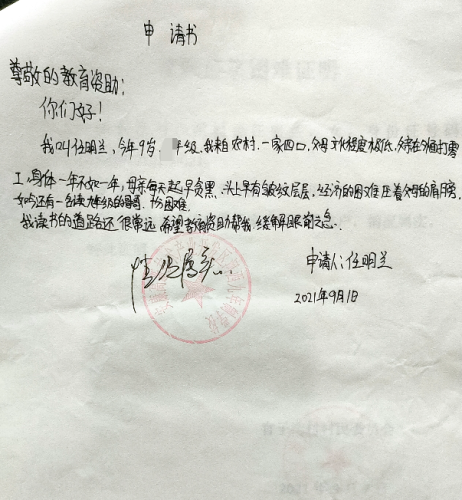 申 请书
尊敬的教育资助:
你们好!
我叫任明兰,今年9岁,年级.我来自农村.一家四口,父母文化程度极低,父亲在外面打零
工,身体一年不如一年,母亲每天起早贪黑,头上早有皱纹层层,经济的困难压着父母的肩膀,
如今还有一名读九年级的哥哥,十分困难,
我读书的道路还很常远,希望教育资助帮我缓解眼前之急.
情况属实
申请人:任明兰
2021年9月1日